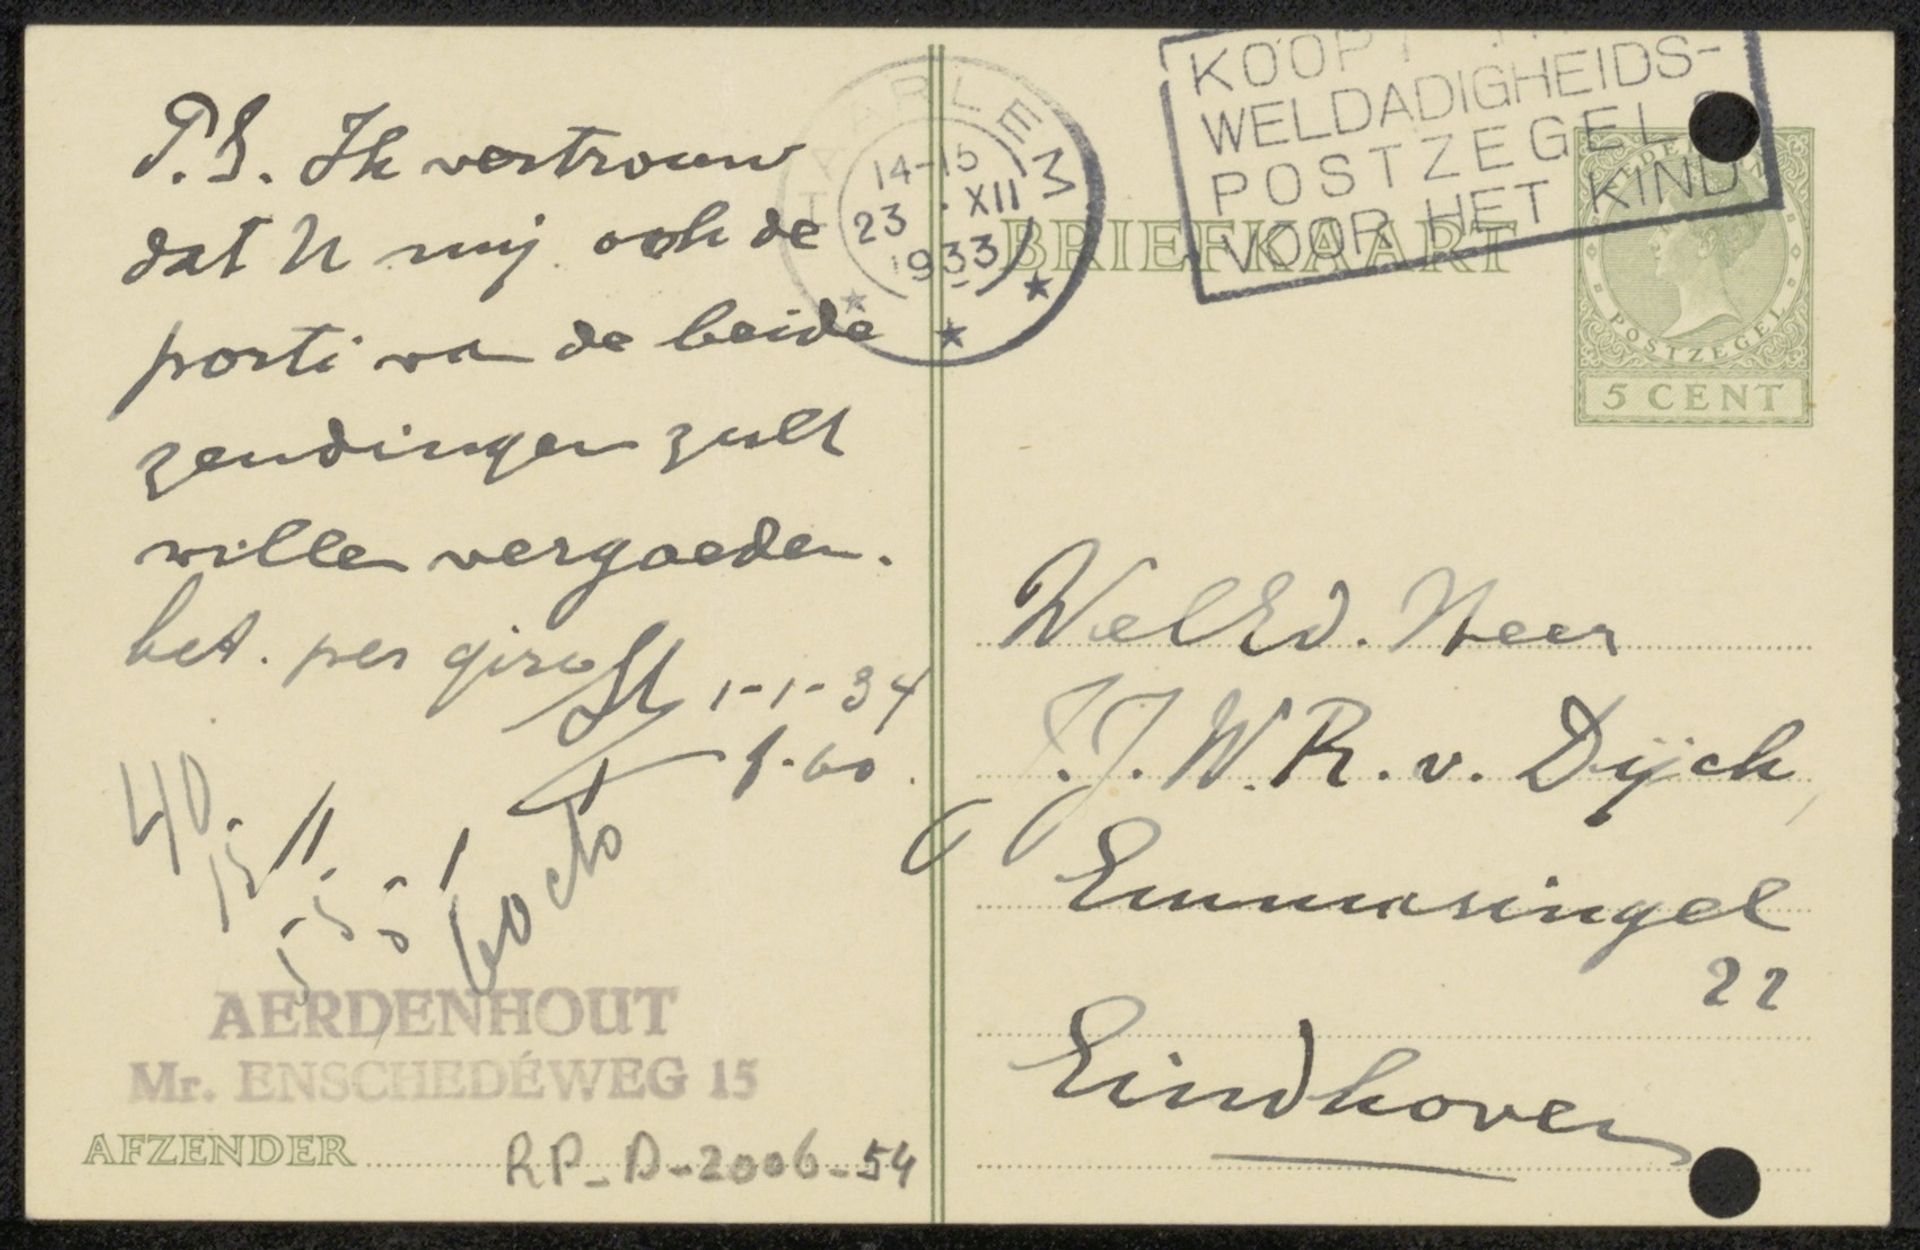 P.S. Ik vertrouw
dat U mij ook de
porti van de beide
zendingen zult
willen vergoeden.
bet. per giro
1-1-34
40
60 cto
AERDENHOUT
Mr. ENSCHEDÉWEG 15
AFZENDER
RP-D-2006-54
HAARLEM
14-15
23 XII
1933
KOOPT
WELDADIGHEIDS-
POSTZEGELS
VOOR HET KIND
BRIEFKAART
POSTZEGEL
5 CENT
WelEd. Heer
J.J.W.R. v. Dijck
Emmasingel
22
Eindhoven